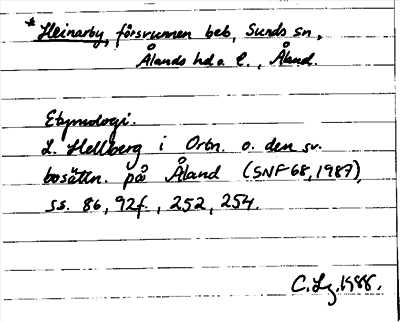 *Heinarby, försvunnen beb, Sunds sn,
Ålands hd o. l., Åland.
Etymologi.
L. Hellberg i Ortn. o. den sv.
bosättn. på Åland (SNF 68, 1987),
ss. 86, 92f., 252, 254.
C. Lg. 1988.